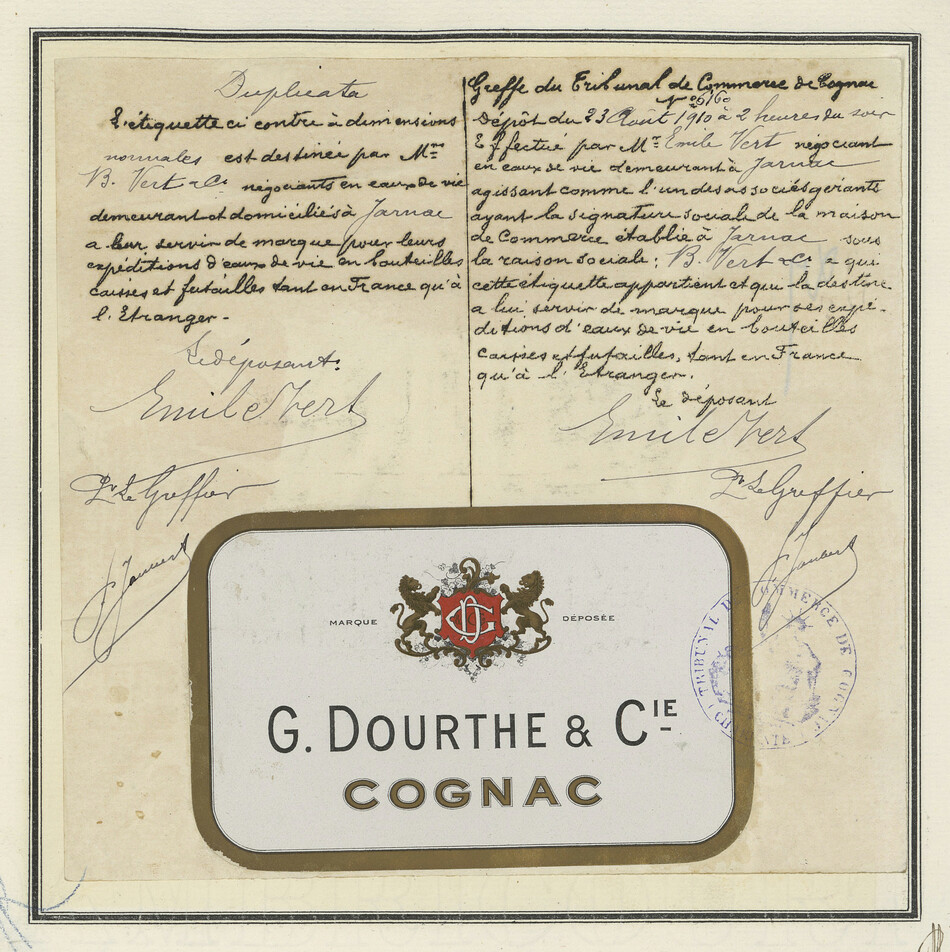 Duplicata
L'étiquette ci contre à dimensions
normales est destinée par Mrs
B. Vert & Cie négociants en eaux de vie
demeurant et domiciliés à Jarnac
a leur servir de marque pour leurs
expéditions d'eaux de vie en bouteilles
caisses et futailles tant en France qu'à
l'Etranger -
Le déposant:
Emile Vert
Pr Le Greffier
Greffe du Tribunal de Commerce de Cognac
Dépôt du 23 Août 1910 à 2 heures du soir
Effectué par Mr Emile Vert négociant
en eaux de vie demeurant à Jarnac
agissant comme l'un des associés gérants
ayant la signature sociale de la maison
de Commerce établie à Jarnac sous
la raison sociale: B. Vert & Cie a qui
cette étiquette appartient et qui la destine
a lui servir de marque pour ses expé-
ditions d'eaux de vie en bouteilles
caisses et futailles, tant en France
qu'à l'Etranger.
Le déposant
Emile Vert
Pr Le Greffier
MARQUE DÉPOSÉE
G. DOURTHE & CIE
COGNAC
TRIBUNAL DE COMMERCE DE COGNAC